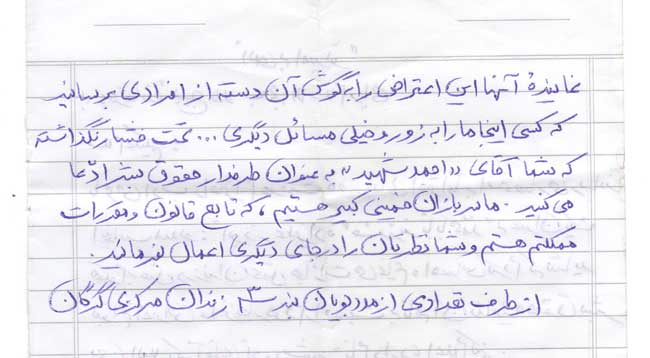 نمایندهٔ آنها این اعتراض را به گوش آن دسته از افرادی برسانید
که کسی اینجا ما را به زور و خیلی مسائل دیگری ... تحت فشار نگذاشته
که شما آقای «احمد شهید» به عنوان طرفدار حقوق بشر ادّعا
می کنید. ما سربازان خمینی کبیر هستیم، که تابع قانون و مقررات
مملکتم هستم و شما نظرتان را در جای دیگری اعمال بفرمائید.
از طرف تعدادی از مددجویان بند ۳ زندان مرکزی گرگان